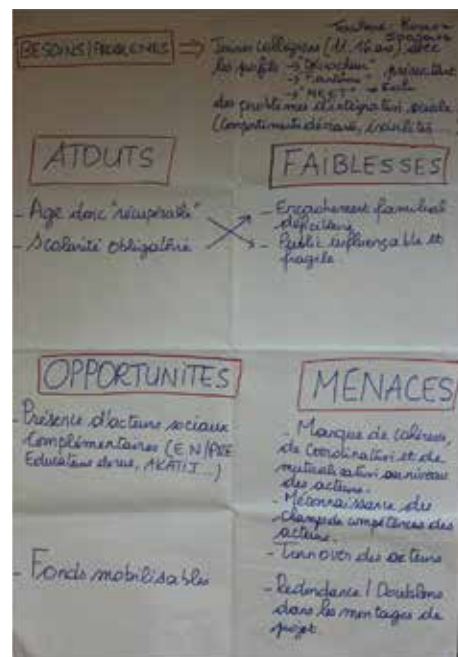 BESOINS/PROBLÈMES => Jeunes collégiens (11-16 ans) avec
les profils → "Décrocheur"
→ "Fantôme" présentant
→ "NEET"
des problèmes d'intégration sociale
(Comportements déviants, incivilités...)
ATOUTS
- Age donc "récupérable"
- Scolarité obligatoire
FAIBLESSES
- Encadrement familial
déficitaire
- Public influençable et
fragile
OPPORTUNITÉS
- Présence d'acteurs sociaux
complémentaires (E.N/PRE
Educateurs de rue, AKATIJ...)
- Fonds mobilisables
MENACES
- Manque de cohérence,
de coordination et de
mutualisation au niveau
des acteurs.
- Méconnaissance des
champs de compétences des
acteurs.
- Turnover des acteurs
- Redondance / Doublons
dans les montages de
projet